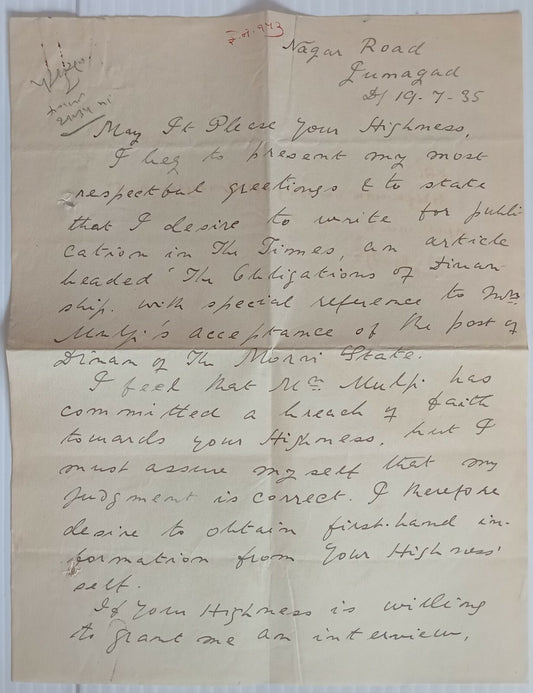 Nagar Road
Junagad
D/ 19-7-35
May It Please Your Highness,
I beg to present my most
respectful greetings & to state
that I desire to write for publi-
cation in The Times, an article
headed 'The Obligations of Dinan-
ship. with special reference to Mr
Mulji's acceptance of the post of
Dinan of The Morvi State.
I feel that Mr Mulji has
committed a breach of faith
towards your Highness, but I
must assure myself that my
judgment is correct. I therefore
desire to obtain first-hand in-
formation from Your Highness'
self.
If Your Highness is willing
to grant me an interview,